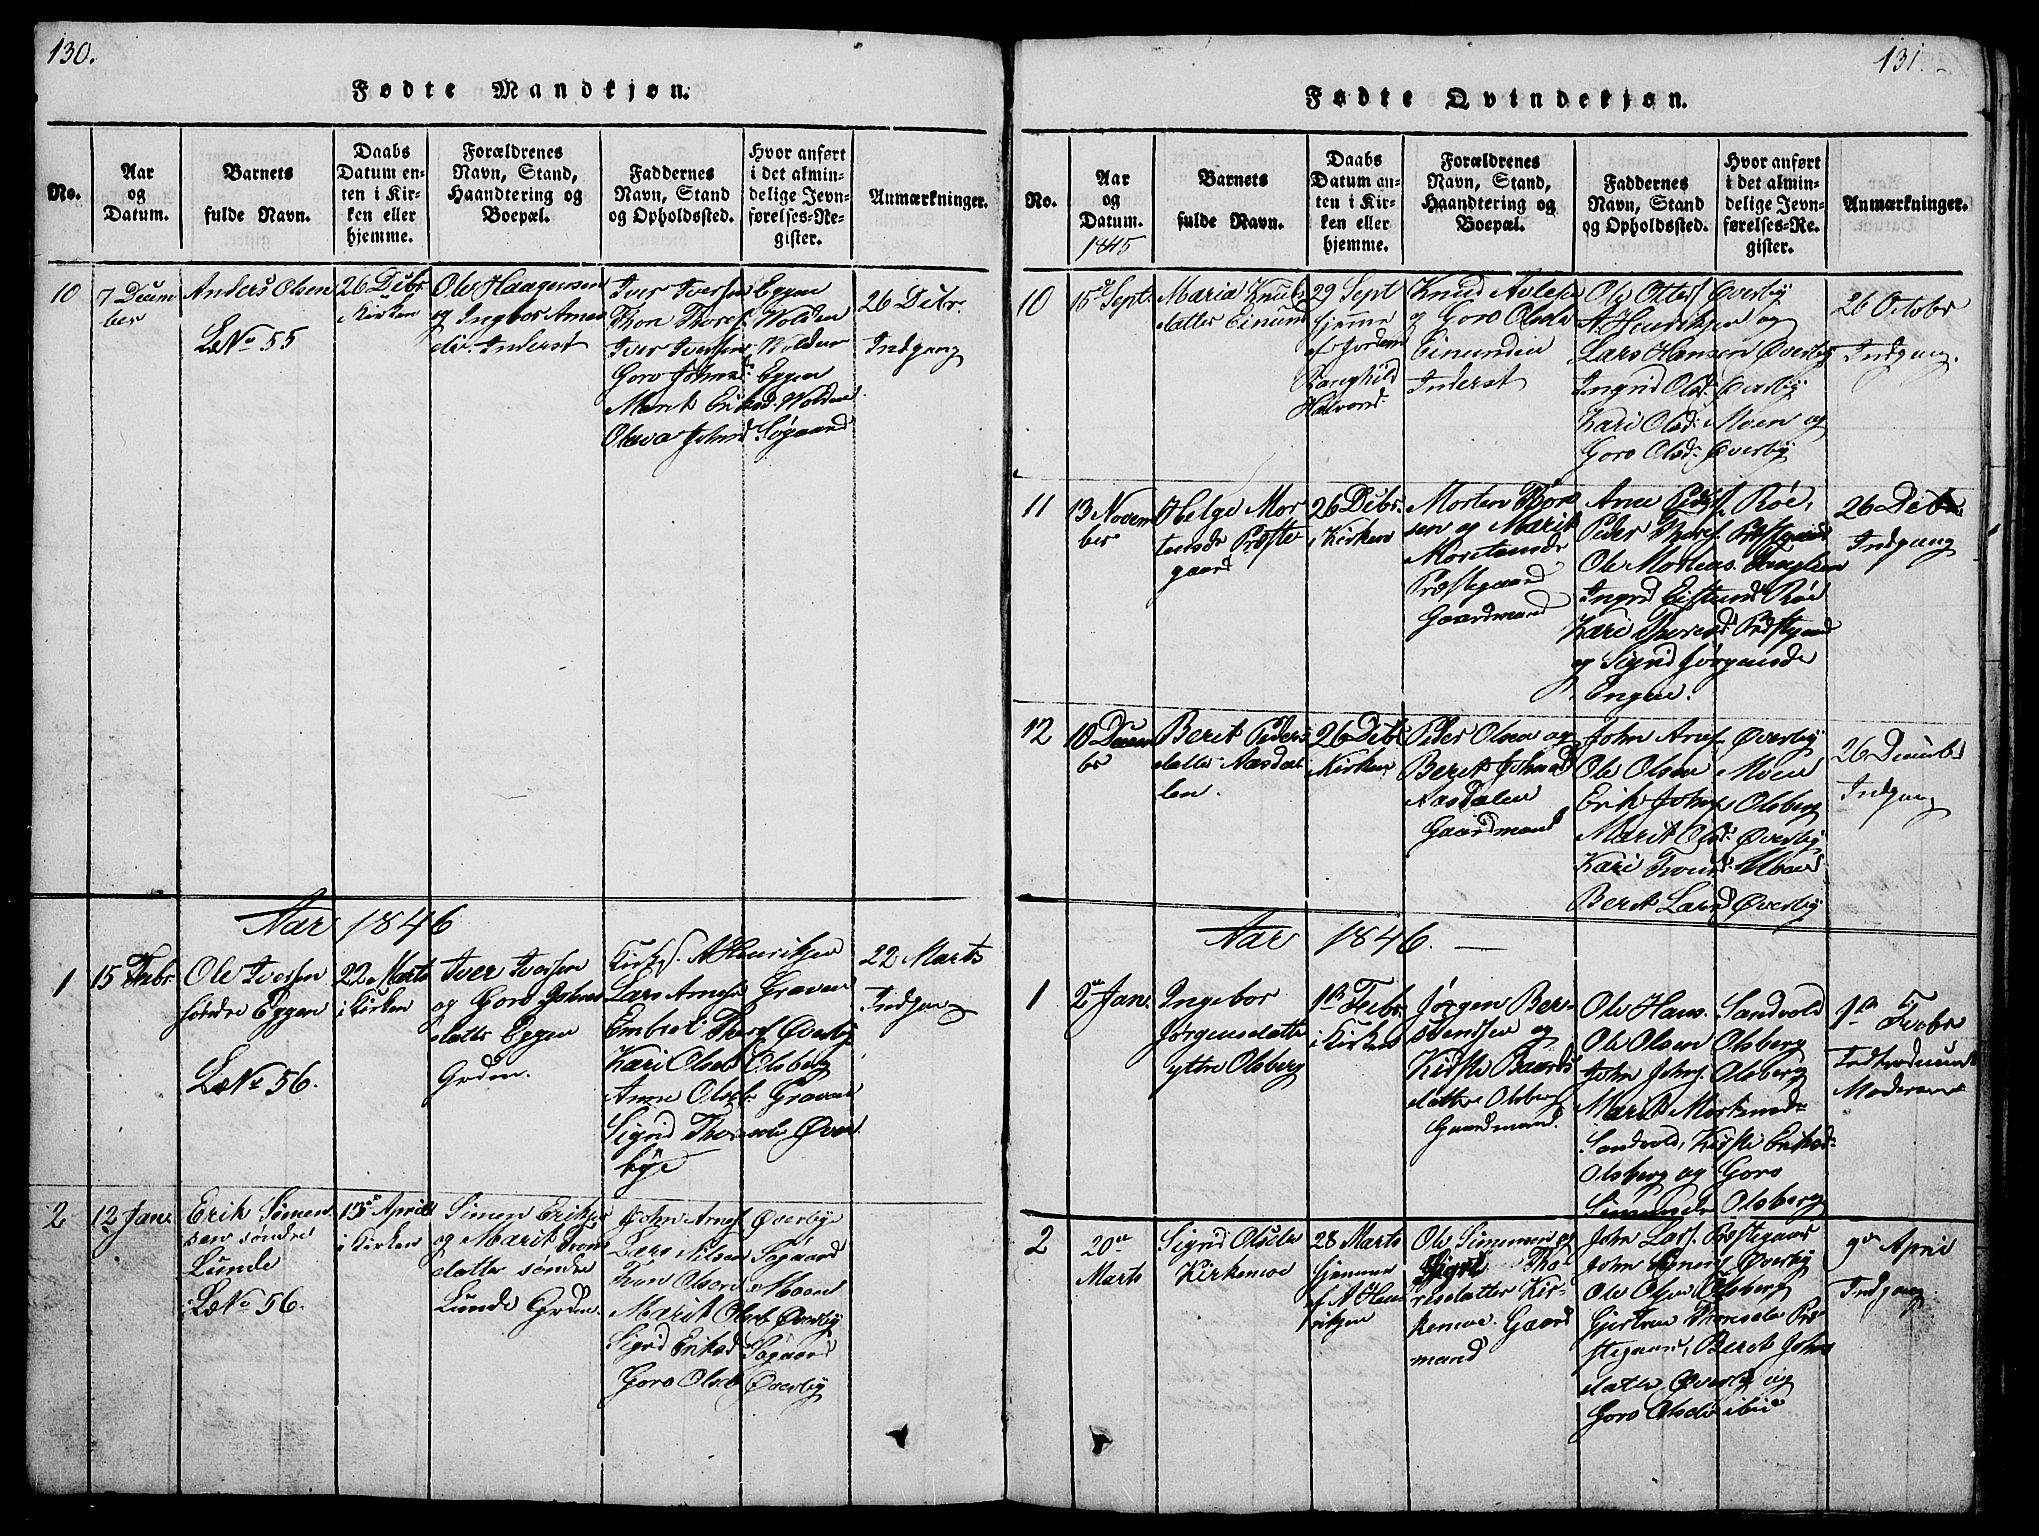 130.
Fødte Mandkjøn.
No.
Aar
og
Datum.
Barnets
fulde Navn.
Daabs
Datum en-
ten i Kir-
ken eller
hjemme.
Forældrenes
Navn, Stand,
Haandtering og
Boepæl.
Faddernes
Navn, Stand
og Opholdssted.
Hvor anført
i det almin-
delige Jevn-
førelses-Re-
gister.
Anmærkninger.
10
7 Decem
ber
Anders Olsen
L No 55
26 Debr
Kirken
Ole Haagensen
og Ingbor Arnes
Inderst
Iver Iversen Eggen
Thore Wolden
Iver Iversen Wolden
Goro Eggen
Marit Eriksd: Wolden
Søgaard
26 Debr.
Indgang
Aar 1846
1
15 Febr.
Ole Iversen
søndre Eggen
L No 56.
22 Marts
i Kirken
Iver Iversen
og Goro Johns
datter Eggen
Grdm.
A Henriksen
Lars Arnes. Graven
Embret Thores Øverby
Kari Olsd Olsberg
Anne Olsd: Graven
Sigrid Øver
bye
22 Marts
Indgang
2
12 Jan.
Erik Simen
sen søndre
Lunde
L No 56.
13de April
i Kirken
Simen Eriksen
og Marit
datter søndre
Lunde Grdm.
John Arnes. Øverbye
Lars Nilsen Søgaard
Olsen Moen
Marit Olsd Øverby
Sigrid Eriksd Søgaard
Goro Olsd Øverby
131.
Fødte Qvindekjøn.
No.
Aar
og
Datum.
1845
Barnets
fulde Navn.
Daabs
Datum an-
ten i Kir-
ken eller
hjemme.
Forældrenes
Navn, Stand,
Haandtering og
Boepæl.
Faddernes
Navn, Stand
og Opholdssted.
Hvor anført
i det almin-
delige Jevn-
førelses-Re-
gister.
Anmærkninger.
10
15 Sept.
Maria Knuds
datter Einund
29 Sept
hjemme
af Jordem
Ranghild
Halvord:
Knud
og Goro Olsdr
Einunden
Inderst
Ole Øverby
A Henriksen og
Lars Hansen Øverby
Ingrid Olsd: Øverby
Kari Olsd: Moen og
Goro Olsd: Øverby
26 Octobr
Indgang.
11
13 Novem
ber
Helge Mor
tensdr Præste
gaard
26 Debr.
i Kirken
Morten Thore
sen og Marit
Mortensdr
Præstegaard
Gaardmand
Arne Peders. Røe,
Peder Thores. Præstgaard
Ole Mortens.
Ingrid Røe
Kari Thoresd Præstgaard
og Sigrid Jørgensdr
Engen.
26 Debr
Indgang
12
18 Decem
br
Beret Peders
datter Aasdal
len.
26 Debr
i Kirken
Peder Olsen og
Beret Johnsd
Aasdalen
Gaardmand
John Arnes. Øverby
Ole Olsen Moen
Erik Johns. Olsberg
Marit Olsd: Øverby
Kari Moen
Beret Larsd Øverby
26 Decemb.
Indgang
Aar 1846.
1
2den Jan.
Ingebor
Jørgensdatter
yttre Olsberg
1ste Febr.
i Kirken
Jørgen Ber-
tendsen og
Kirste Baards
datter Olsberg
Gaardmand.
Ole Hans. Sandvold
Ole Olsen Olsberg
John Johns. Olsberg
Marit Mortensdr
Sandvold, Kirste Eriksd:
Olsberg og Goro
Simensdr Olsberg
1ste Febr
Moderen
2
20de
Marts
Sigrid Olsdtr
Kirkemoe
28 Marts
hjemme
af A Hen
riksen
Ole Simensen og
Tho
resdatter Kir-
kemoe. Gaard
mand
John Lars. Præstegaard
John Øverby
Ole Olsen Olsberg
Gjertru Thoresdr Præ
stegaard, Beret Johns
datter Øverby og
Goro Olsdr
9de April
Indgang